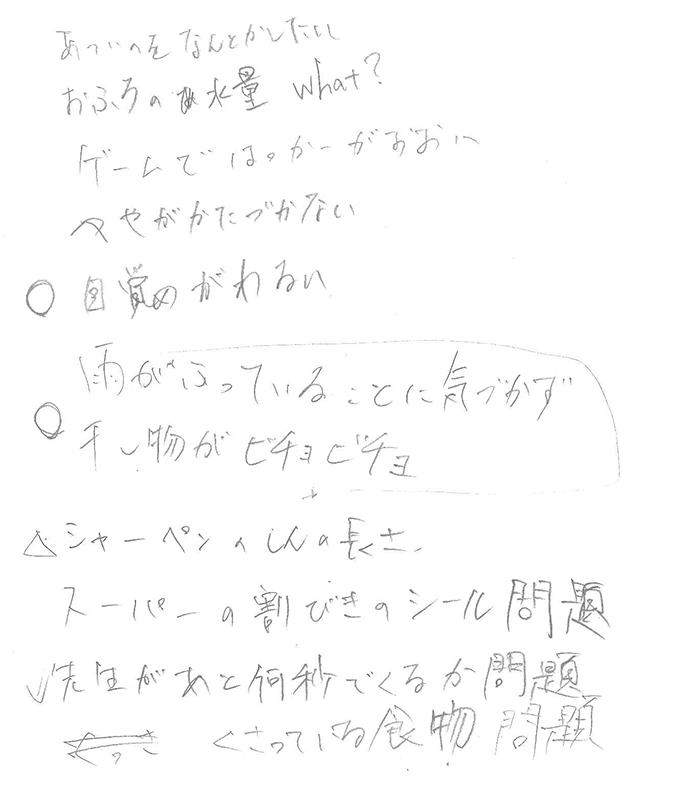 あついのをなんとかしたい
おふろの水量 What?
ゲームではっかーがおおい
へやがかたづかない
○ 目覚めがわるい
雨がふっていることに気づかず
○ 干し物がビチョビチョ
△シャーペンのしんの長さ
スーパーの割びきのシール問題
✓先生があと何秒でくるか問題
くさっている食物問題